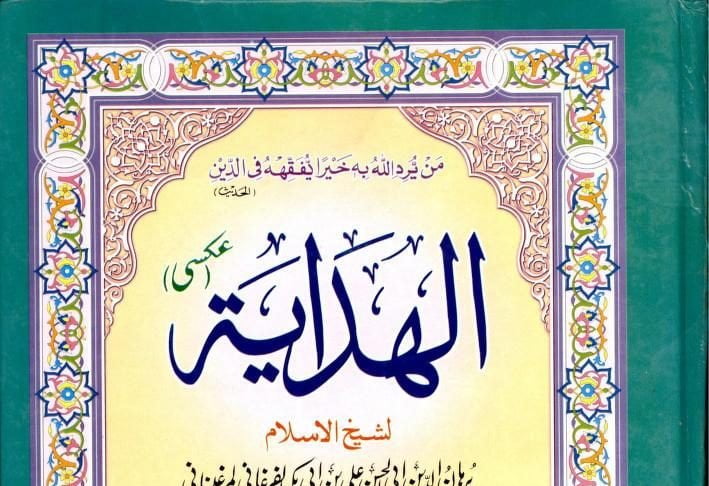 مَنْ يُّرِدِ اللهُ بِهٖ خَيْرًا يُّفَقِّهْهُ فِى الدِّيْنِ
(الحديث)
الهداية
(عكسى)
لشيخ الاسلام
برهان الدين ابى الحسن على بن ابى بكر الفرغانى المرغينانى